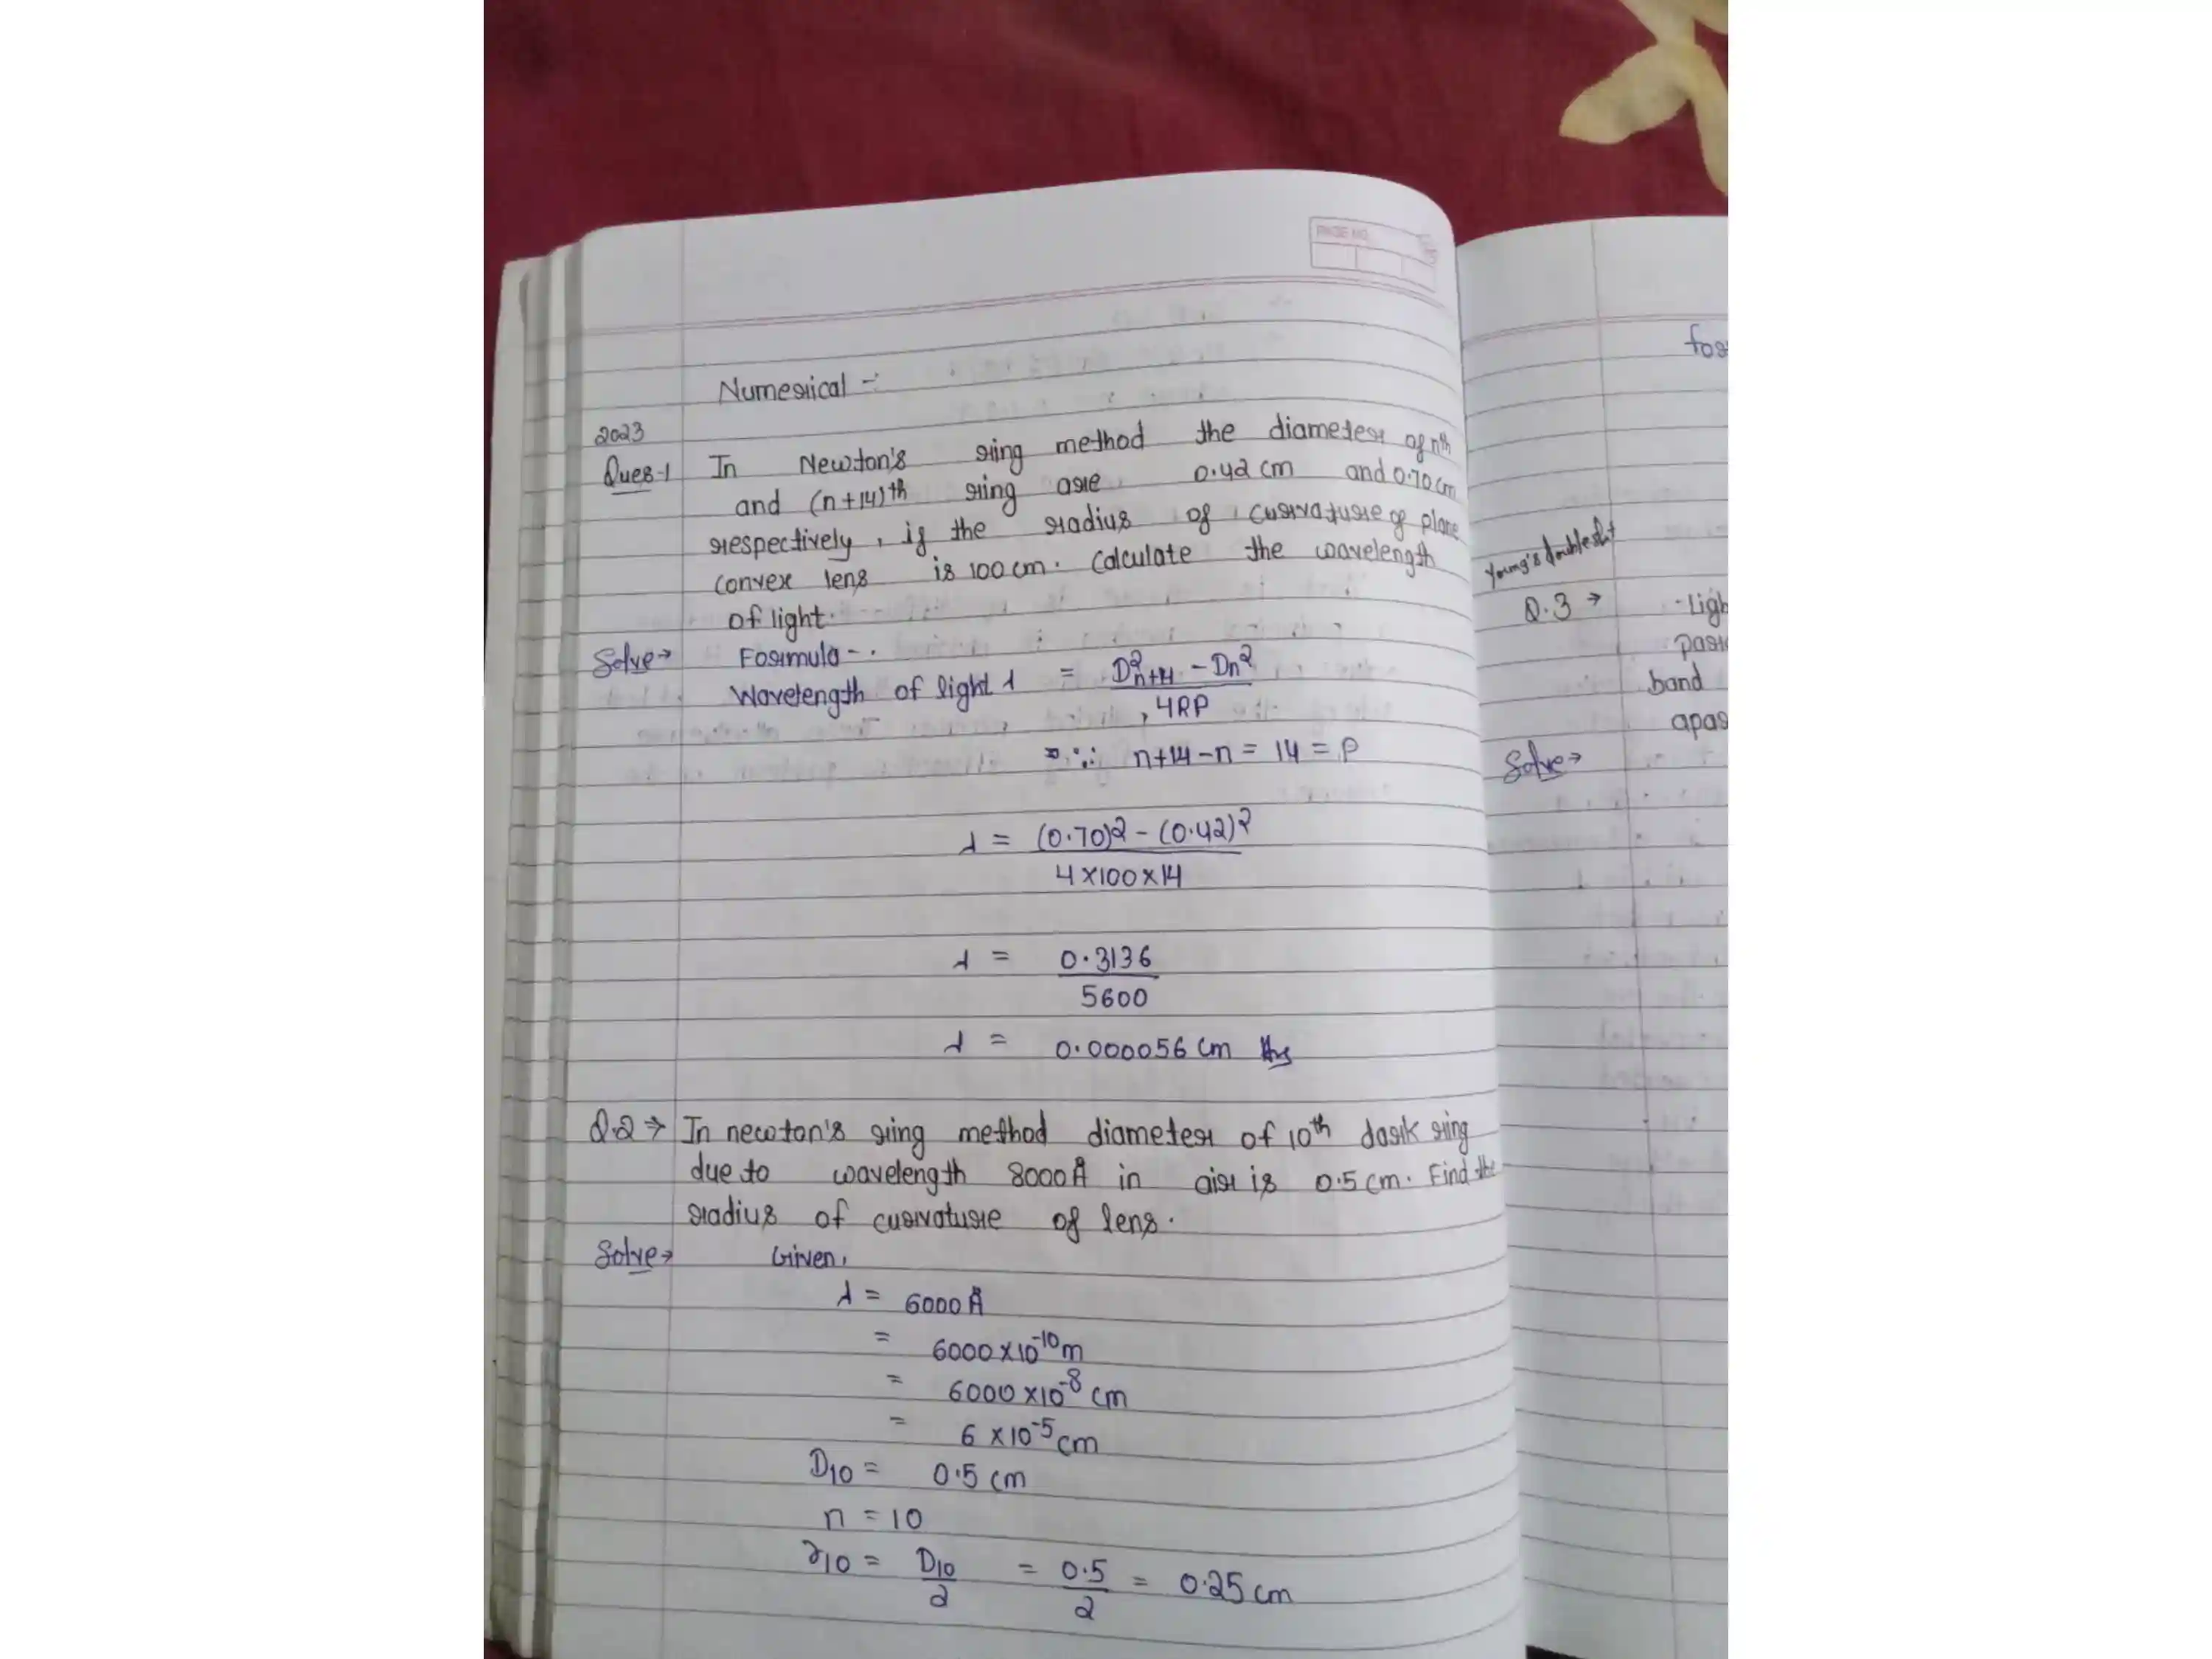 PAGE NO.
Numerical -:
2023
Ques-1 In Newton's ring method the diameter of nth
and (n+14)th ring are 0.42 cm and 0.70 cm
respectively, if the radius of curvature of plane
convex lens is 100 cm. Calculate the wavelength
of light.
Solve→ Formula-.
Wavelength of light λ = D²n+14 - Dn²
4RP
∵ n+14-n = 14 = P
λ = (0.70)2 - (0.42)2
4×100×14
λ = 0.3136
5600
λ = 0.000056 cm Ans
Q.2⇒ In newton's ring method diameter of 10th dark ring
due to wavelength 8000Å in air is 0.5 cm. Find the
radius of curvature of lens.
Solve→ Given,
λ = 6000Å
= 6000×10⁻¹⁰m
= 6000×10⁻⁸ cm
= 6×10⁻⁵cm
D10 = 0.5 cm
n = 10
r10 = D10 = 0.5 = 0.25 cm
2 2
Young's double slit
Q.3 →
band
Solve→